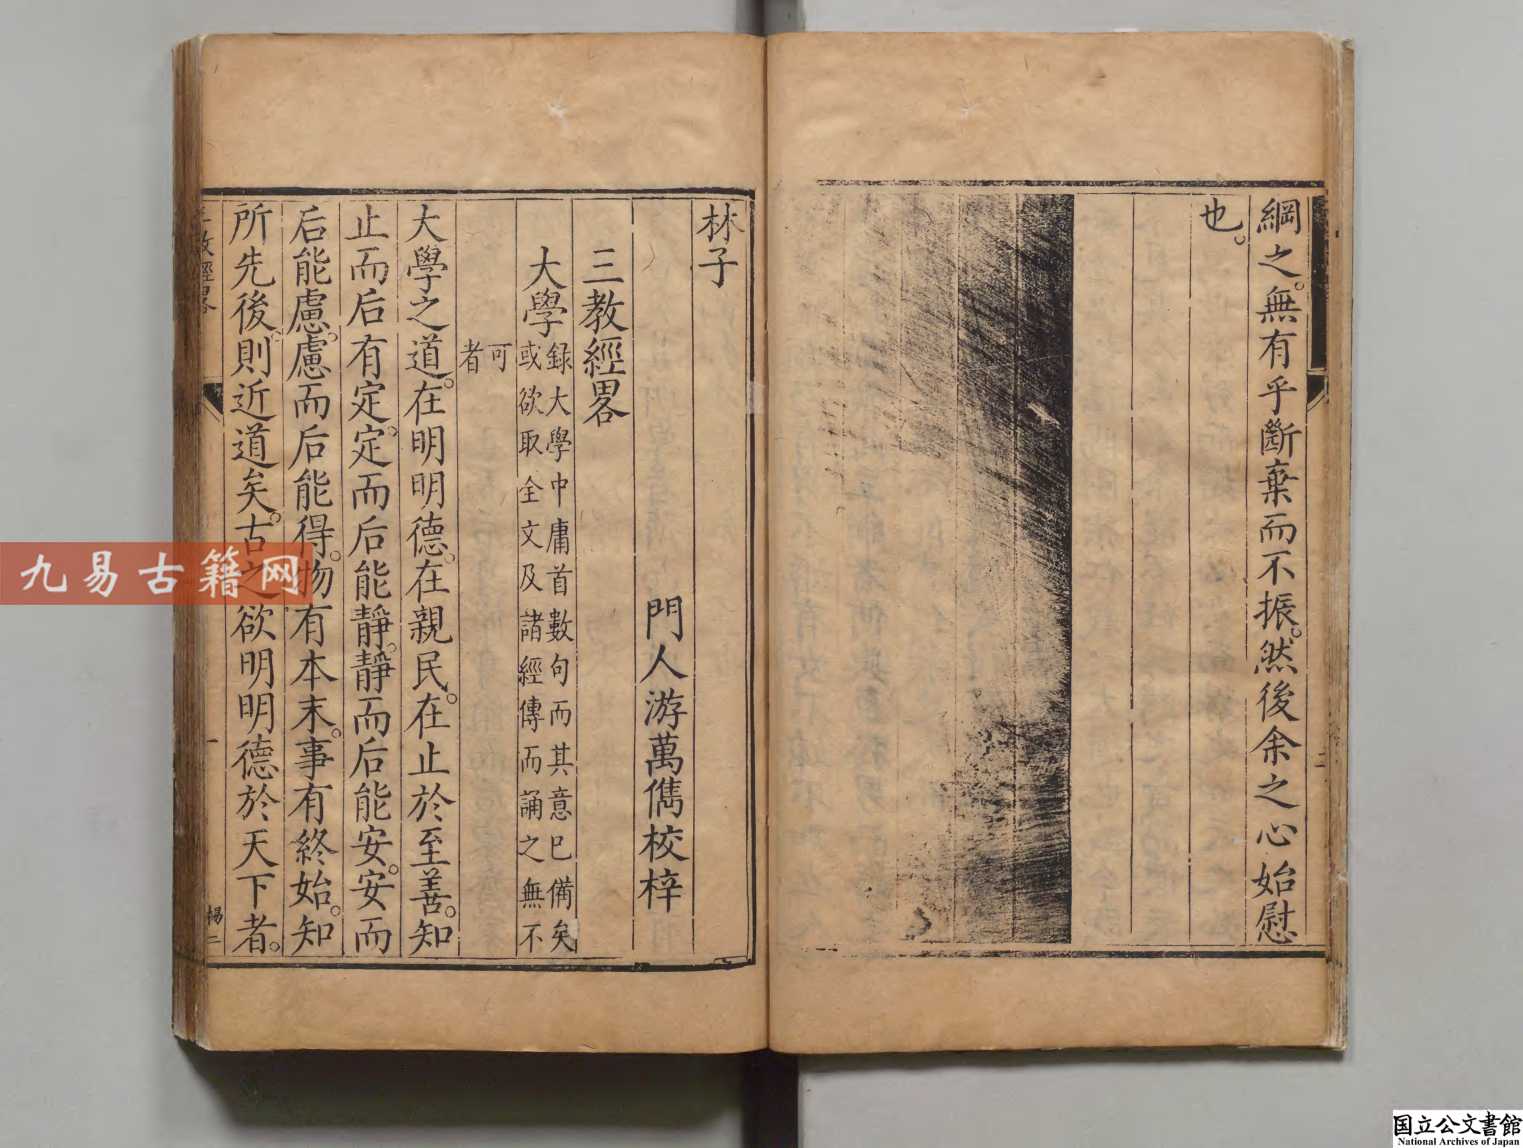 綱之。無有乎斷棄而不振。然後余之心始慰
也。
二
林子
門人游萬儁校梓
三教經畧
大學
錄大學中庸首數句而其意已備矣
或欲取全文及諸經傳而誦之無不
可
者
大學之道。在明明德。在親民。在止於至善。知
止而后有定。定而后能靜。靜而后能安。安而
后能慮。慮而后能得。物有本末。事有終始。知
所先後。則近道矣。古之欲明明德於天下者。
三教經畧
一
九易古籍网
国立公文書館
National Archives of Japan